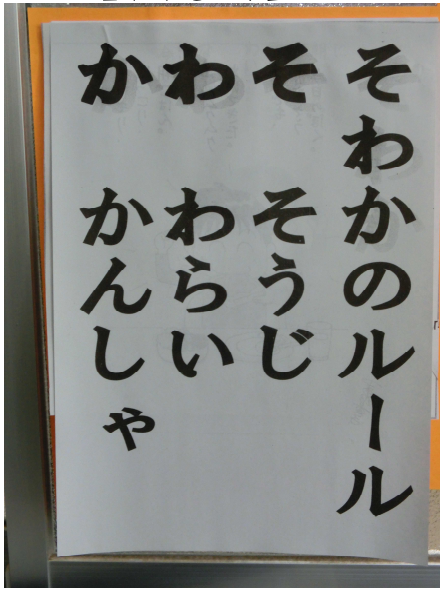 そわかのルール
そ そうじ
わ わらい
か かんしゃ